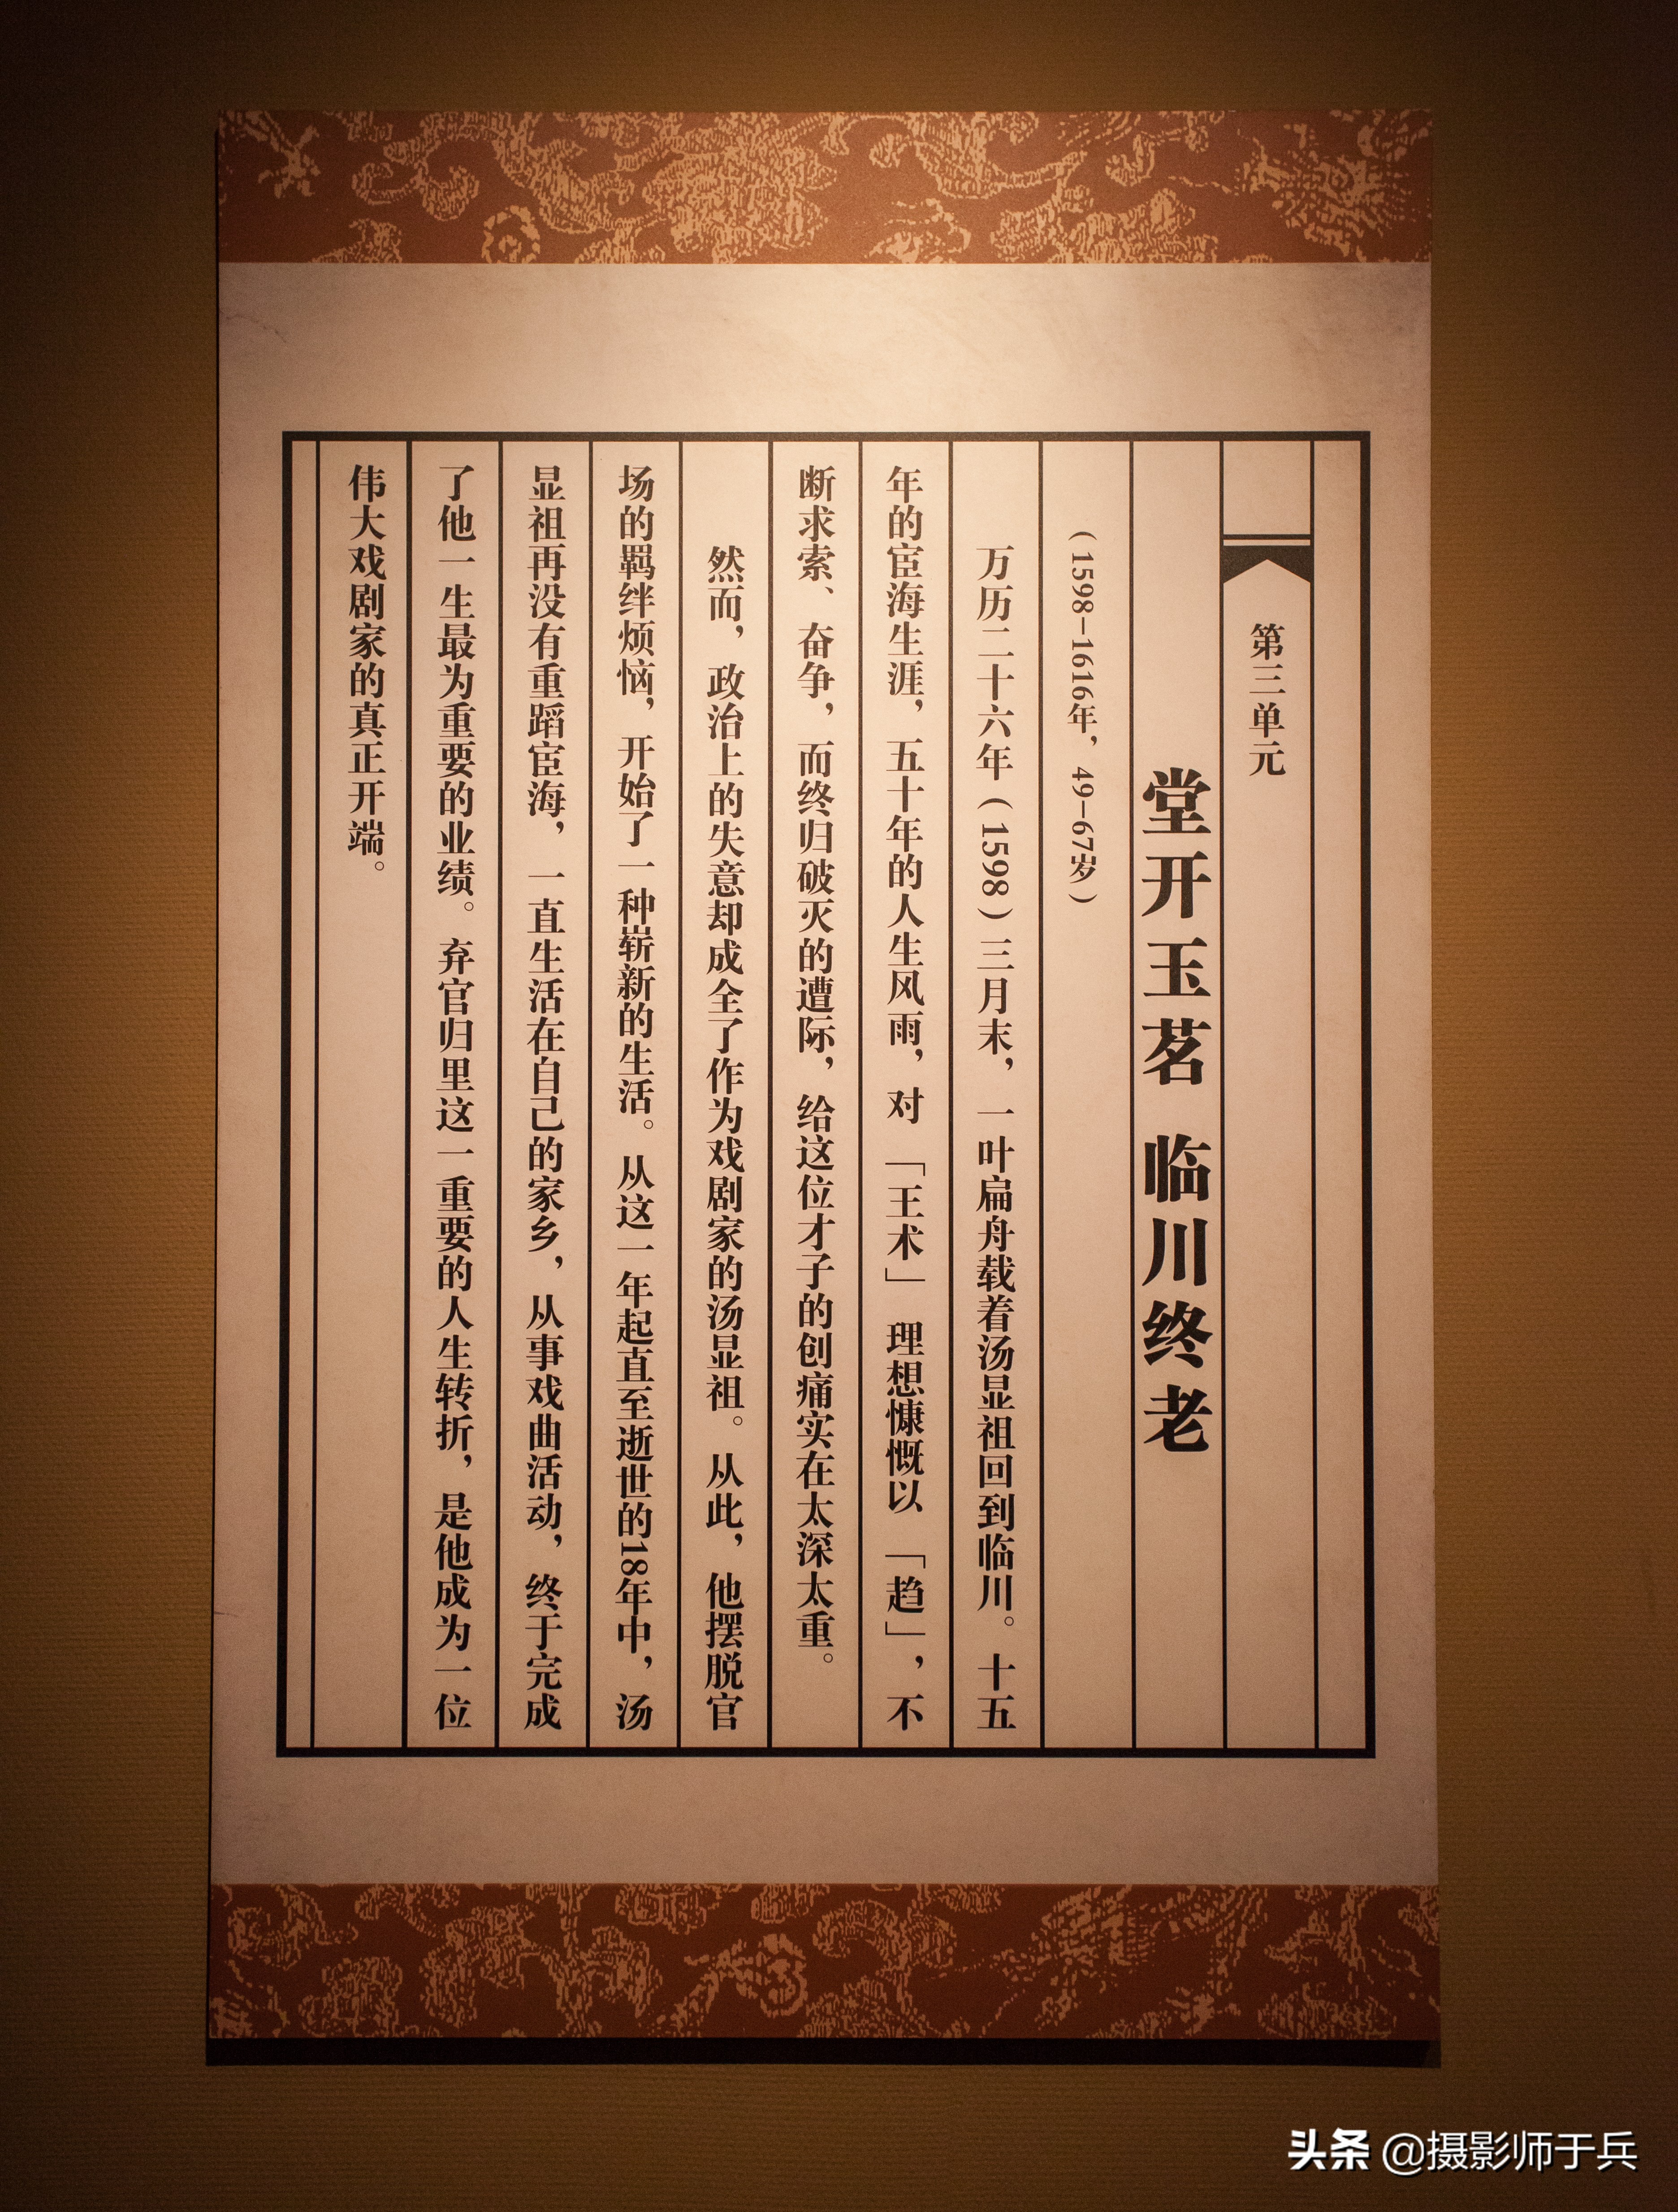 第三单元
堂开玉茗 临川终老
（1598-1616年，49-67岁）
万历二十六年（1598）三月末，一叶扁舟载着汤显祖回到临川。十五
年的宦海生涯，五十年的人生风雨，对「王术」理想慷慨以「趋」，不
断求索、奋争，而终归破灭的遭际，给这位才子的创痛实在太深太重。
然而，政治上的失意却成全了作为戏剧家的汤显祖。从此，他摆脱官
场的羁绊烦恼，开始了一种崭新的生活。从这一年起直至逝世的18年中，汤
显祖再没有重蹈宦海，一直生活在自己的家乡，从事戏曲活动，终于完成
了他一生最为重要的业绩。弃官归里这一重要的人生转折，是他成为一位
伟大戏剧家的真正开端。
头条 @摄影师于兵